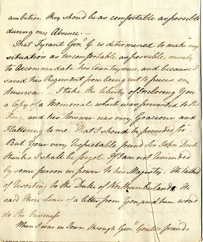 ambition they should be as comfortable as possible
during my Absence.
That Tyrant Gen.l G is determined to make my
situation as uncomfortable as possible merely
to accommodate his countrymen and because I
saved his Regiment from being cut to pieces in
America. I take the Liberty of inclosing you
a Copy of a Memorial which was presented to the
King, and his Answer was very Gracious and
Flattering to me That I should be provided for
But your very Respectable friend Sir John
thinks I shall be forgot If I am not reminded
by some person in power to his Majesty. He talked
of writing to the Duke of Northumberland. He
said three lines of a letter from you and him would
do the business
When I was in Town through Gen.l friends